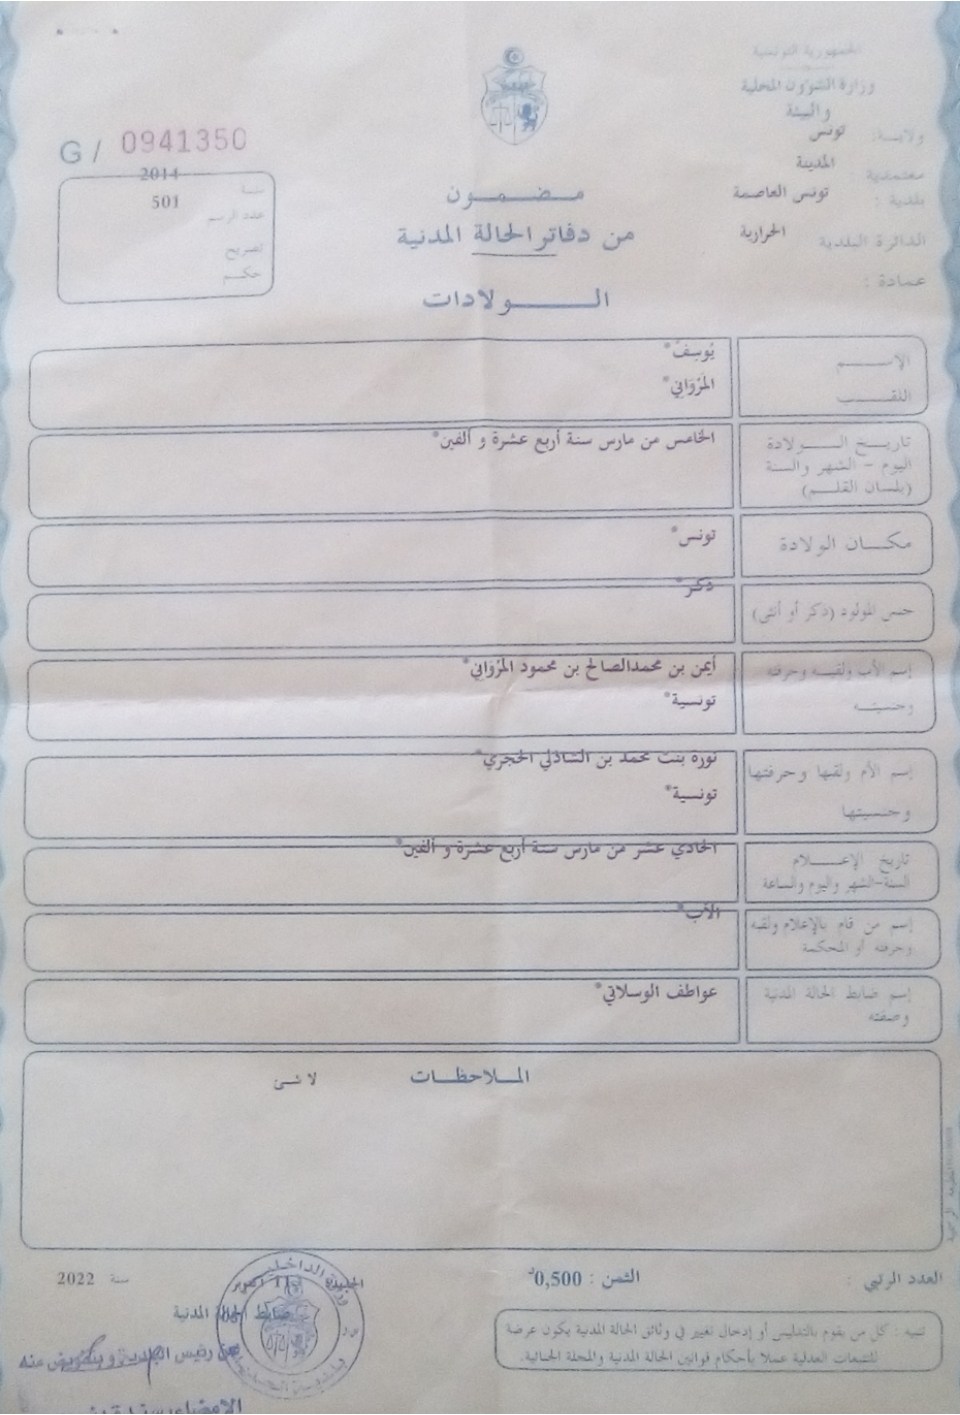 الجمهورية التونسية
وزارة الشؤون المحلية
والبيئة
ولاية: تونس
معتمدية المدينة
بلدية : تونس العاصمة
الدائرة البلدية الحرايرية
عمادة :
G / 0941350
سنة 2014
عدد الرسم 501
تصريح
حكم
مضمون
من دفاتر الحالة المدنية
الولادات
الإسم يُوسِفْ*
اللقب المَرْوَانِي*
تاريخ الولادة الخامس من مارس سنة أربع عشرة و ألفين*
اليوم - الشهر والسنة
(بلسان القلم)
مكان الولادة تونس*
جنس المولود (ذكر أو أنثى) ذكر*
إسم الأب ولقبه وحرفته أيمن بن محمدالصالح بن محمود المَرْوَانِي*
وجنسيته تونسية*
إسم الأم ولقبها وحرفتها نورة بنت محمد بن الشاذلي الحجري*
وجنسيتها تونسية*
تاريخ الإعلام الحادي عشر من مارس سنة أربع عشرة و ألفين*
السنة-الشهر واليوم والساعة
إسم من قام بالإعلام ولقبه الأب*
وحرفته أو المحكمة
إسم ضابط الحالة المدنية عواطف الوسلاتي*
وصفته
الملاحظات لا شئ
العدد الرتبي :
الثمن : 0,500د
11 أكتوبر سنة 2022
ضابط الحالة المدنية
عن رئيس البلدية و بتفويض منه
وزارة الداخلية
تنبيه : كل من يقوم بالتدليس أو إدخال تغيير في وثائق الحالة المدنية يكون عرضة
للتتبعات العدلية عملا بأحكام قوانين الحالة المدنية والمجلة الجنائية.